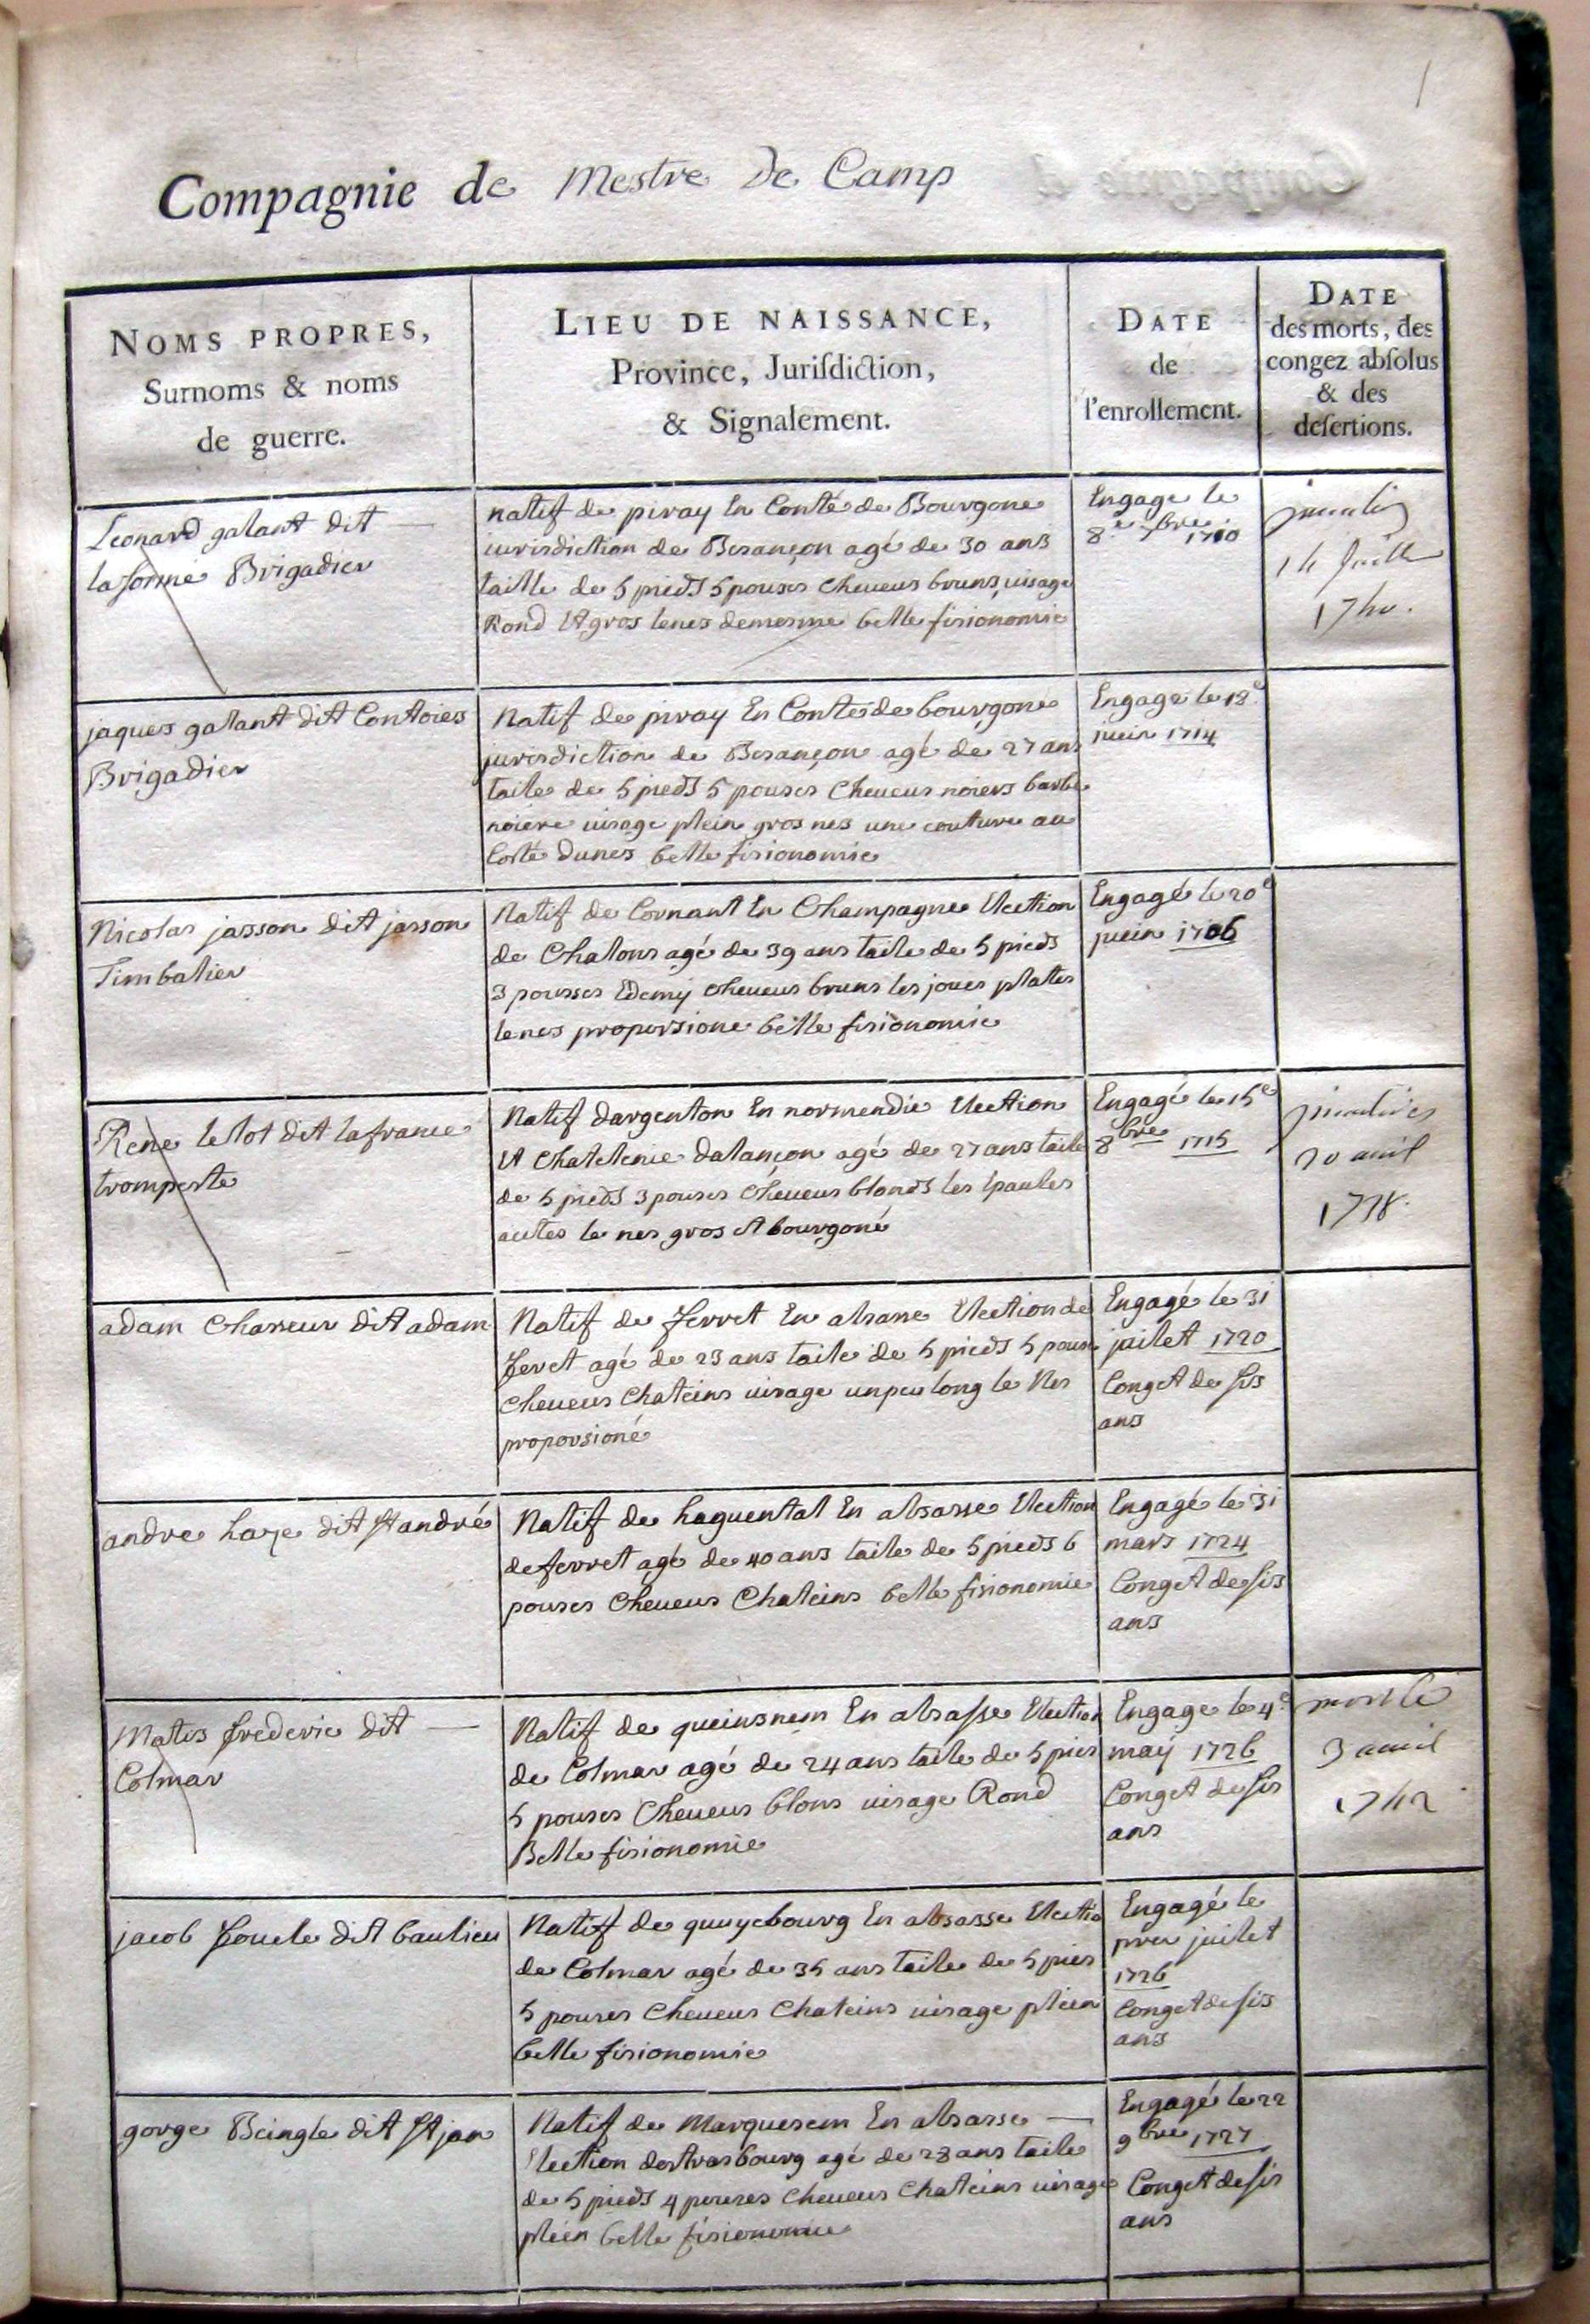 Compagnie de Mestre de Camp
NOMS PROPRES,
Surnoms & noms
de guerre.
LIEU DE NAISSANCE,
Province, Jurisdiction,
& Signalement.
DATE
de
l'enrollement.
DATE
des morts, des
congez absolus
& des
desertions.
Leonard galant dit
laforme Brigadier
natif de piray En Conté de Bourgone
iurisdiction de Besançon agé de 30 ans
taille de 5 pieds 5 pouses cheueus bruns, uisage
Rond Et gros lenes demesme belle fisionomie
Engage le
8e 7bre 1710
14 Juillet
1740.
jaques galant dit Contoies
Brigadier
Natif de piray En Conté de bourgone
jurisdiction de Besançon agé de 27 ans
taile de 5 pieds 5 pouses Cheueus noiers barbe
noiere uisage plein gros nes une couture au
Costé dunes belle fisionomie
Engage le 18e
juin 1714
Nicolas jasson dit jasson
Timbalier
Natif de Cornant En Champagne Election
de Chalons agé de 39 ans taile de 5 pieds
3 pousses Edemy cheueus bruns les joues plates
lenes proporsione belle fisionomie
Engagé le 20e
juin 1706
Rene lelot dit lafrance
trompeste
Natif dargenton En normendie Election
Et Chatelenie dalançon agé de 27 ans taile
de 5 pieds 3 pouses Cheueus blonds les Epaules
autes le nes gros et bourgoné
Engagé le 15e
8bre 1715
20 auril
1778.
adam Chasseur dit adam
Natif de ferret En alsasse Election de
feret agé de 23 ans taile de 5 pieds 5 pouses
Cheueus Chateins uisage unpeu long le Nes
proporsioné
Engagé le 31
juilet 1720
Conget de sis
ans
andre haze dit st andré
Natif de haguental En alsasse Election
deferret agé de 40 ans taile de 5 pieds 6
pouses Cheueus Chateins belle fisionomie
Engagé le 31
mars 1724
Conget de sis
ans
Matis frederic dit
Colmar
Natif de queinsnem En alsasse Election
de Colmar agé de 24 ans taile de 5 pies
5 pouses Cheueus blons uisage Rond
Belle fisionomie
Engage le 4e
may 1726
Conget de sis
ans
mort le
3 auril
1742
jacob foucle dit baulieu
Natif de quuyebourg En alsasse Electio
de Colmar agé de 35 ans taile de 5 pies
5 pouses Cheueus Chateins uisage plien
belle fisionomie
Engagé le
prer juilet
1726
Conget de sis
ans
gorge Beingle dit st jan
Natif de Marquesem En alsasse
Election destrasbourg agé de 28 ans taile
de 5 pieds 4 pouses Cheueus Chateins uisage
plein belle fisionomie
Engagé le 22
9bre 1727
Conget de sis
ans